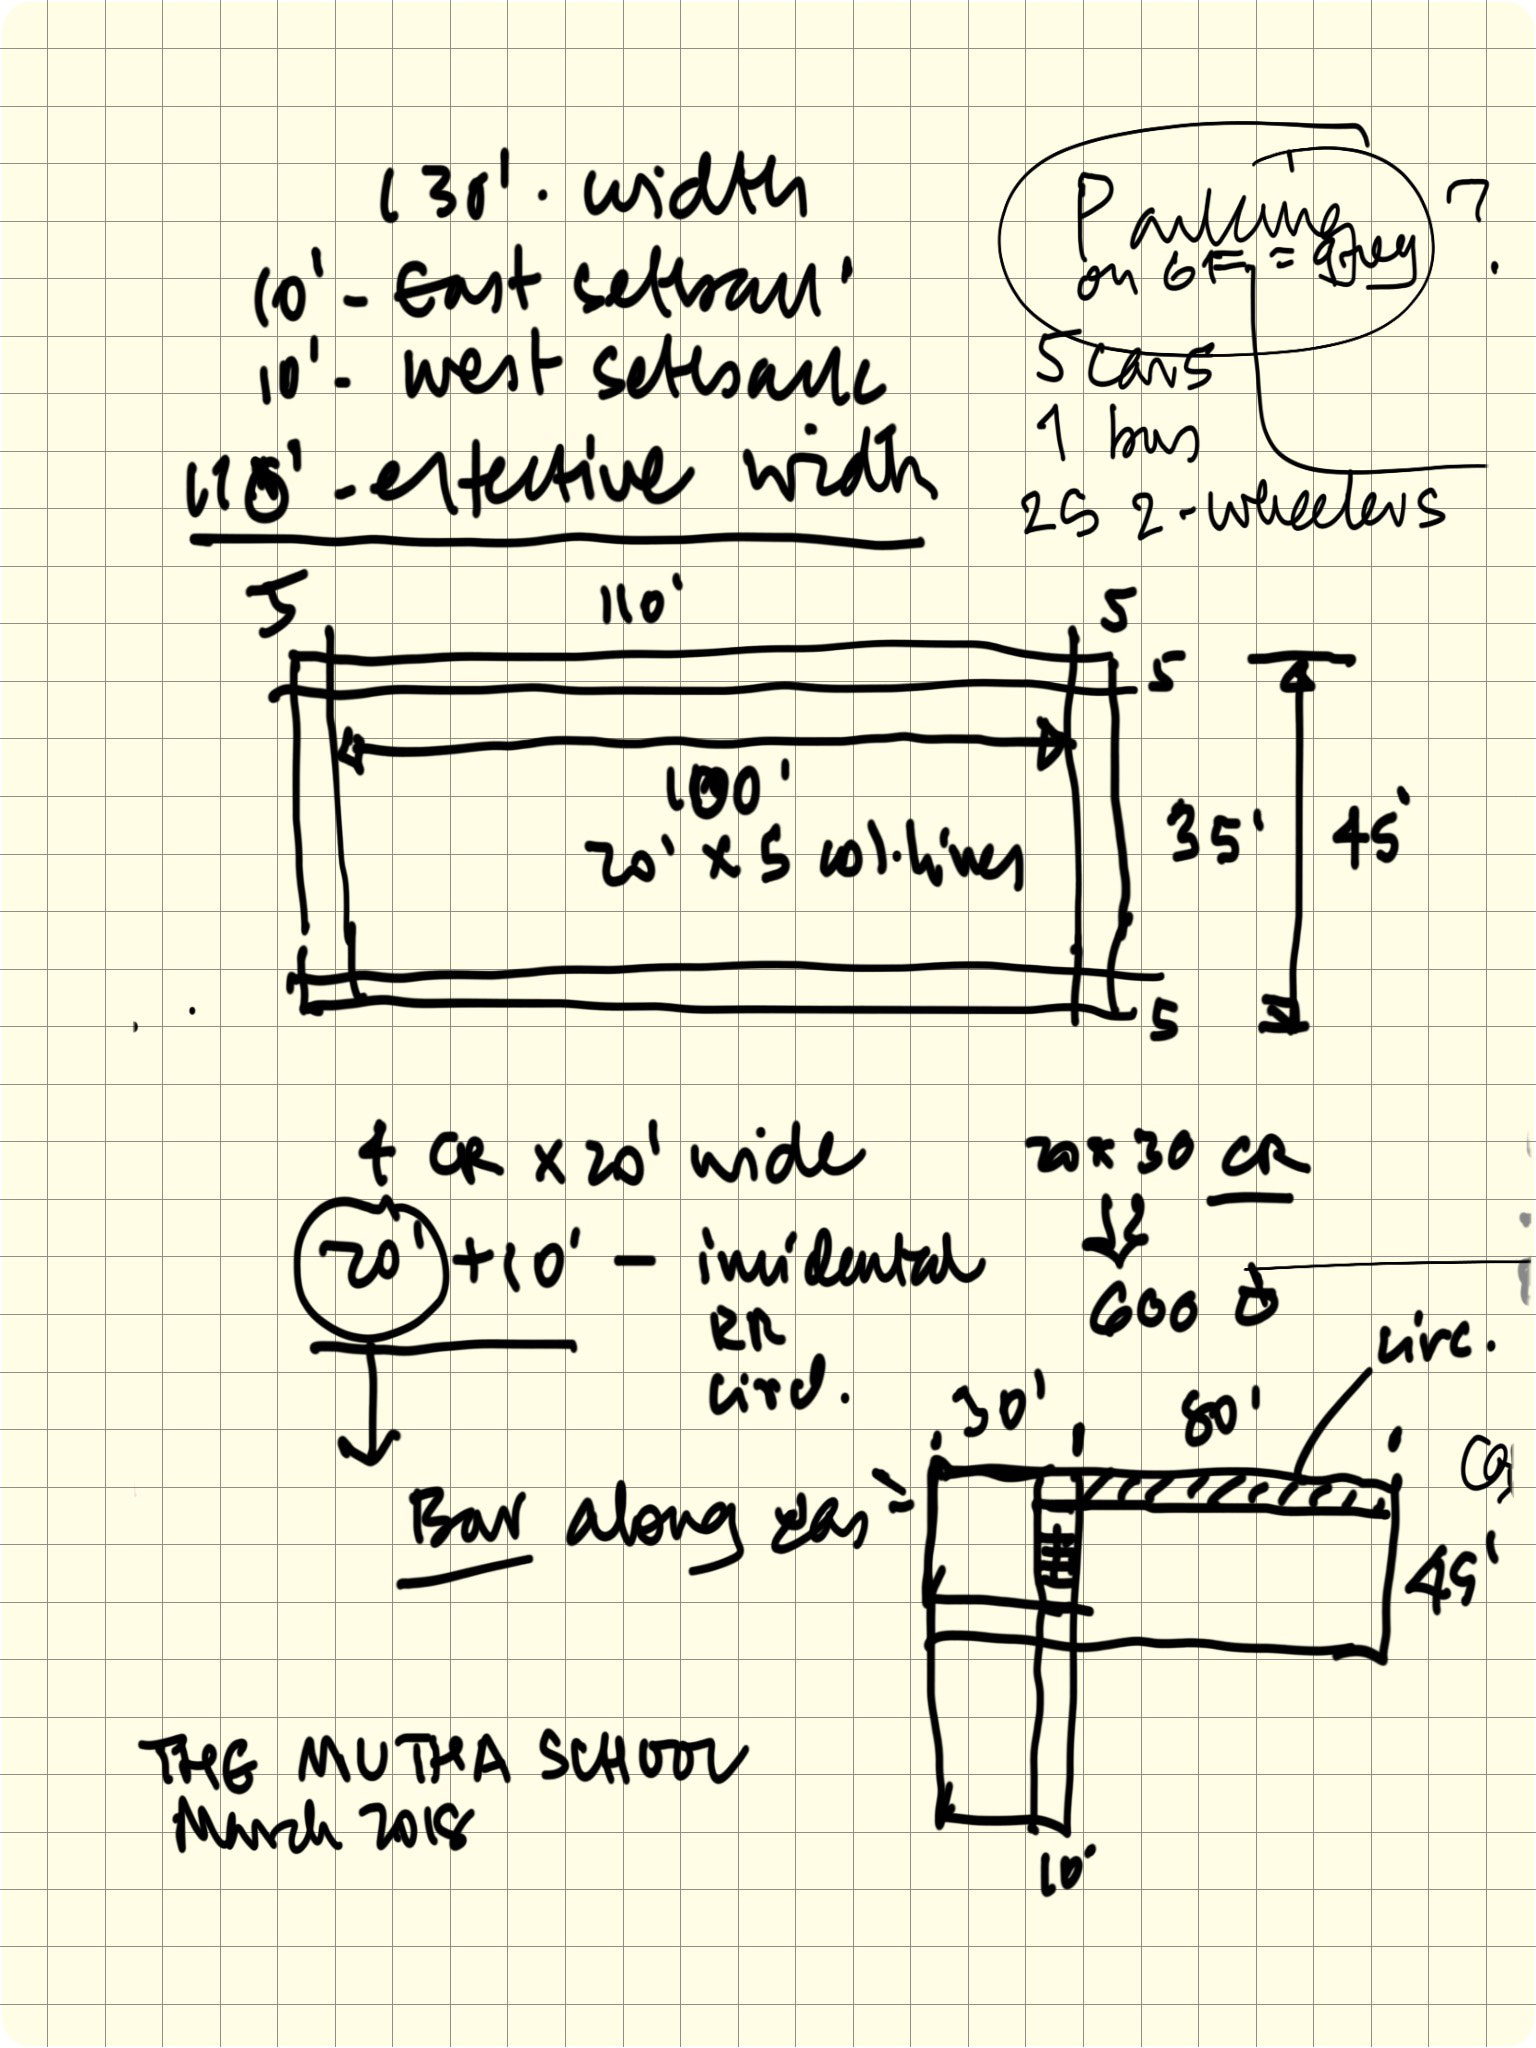 130'. width
10' - East setback
10' - west setback
110' - effective width
Parking ?
on GF =
5 cars
1 bus
25 2-wheelers
5 110' 5
5
100'
20' x 5 col. lines
35' 45'
5
4 CR x 20' wide
20' + 10' - incidental
RR
circ.
Bar along
20 x 30 CR
600
circ.
30' 80'
45'
10'
THE MUTHA SCHOOL
March 2018